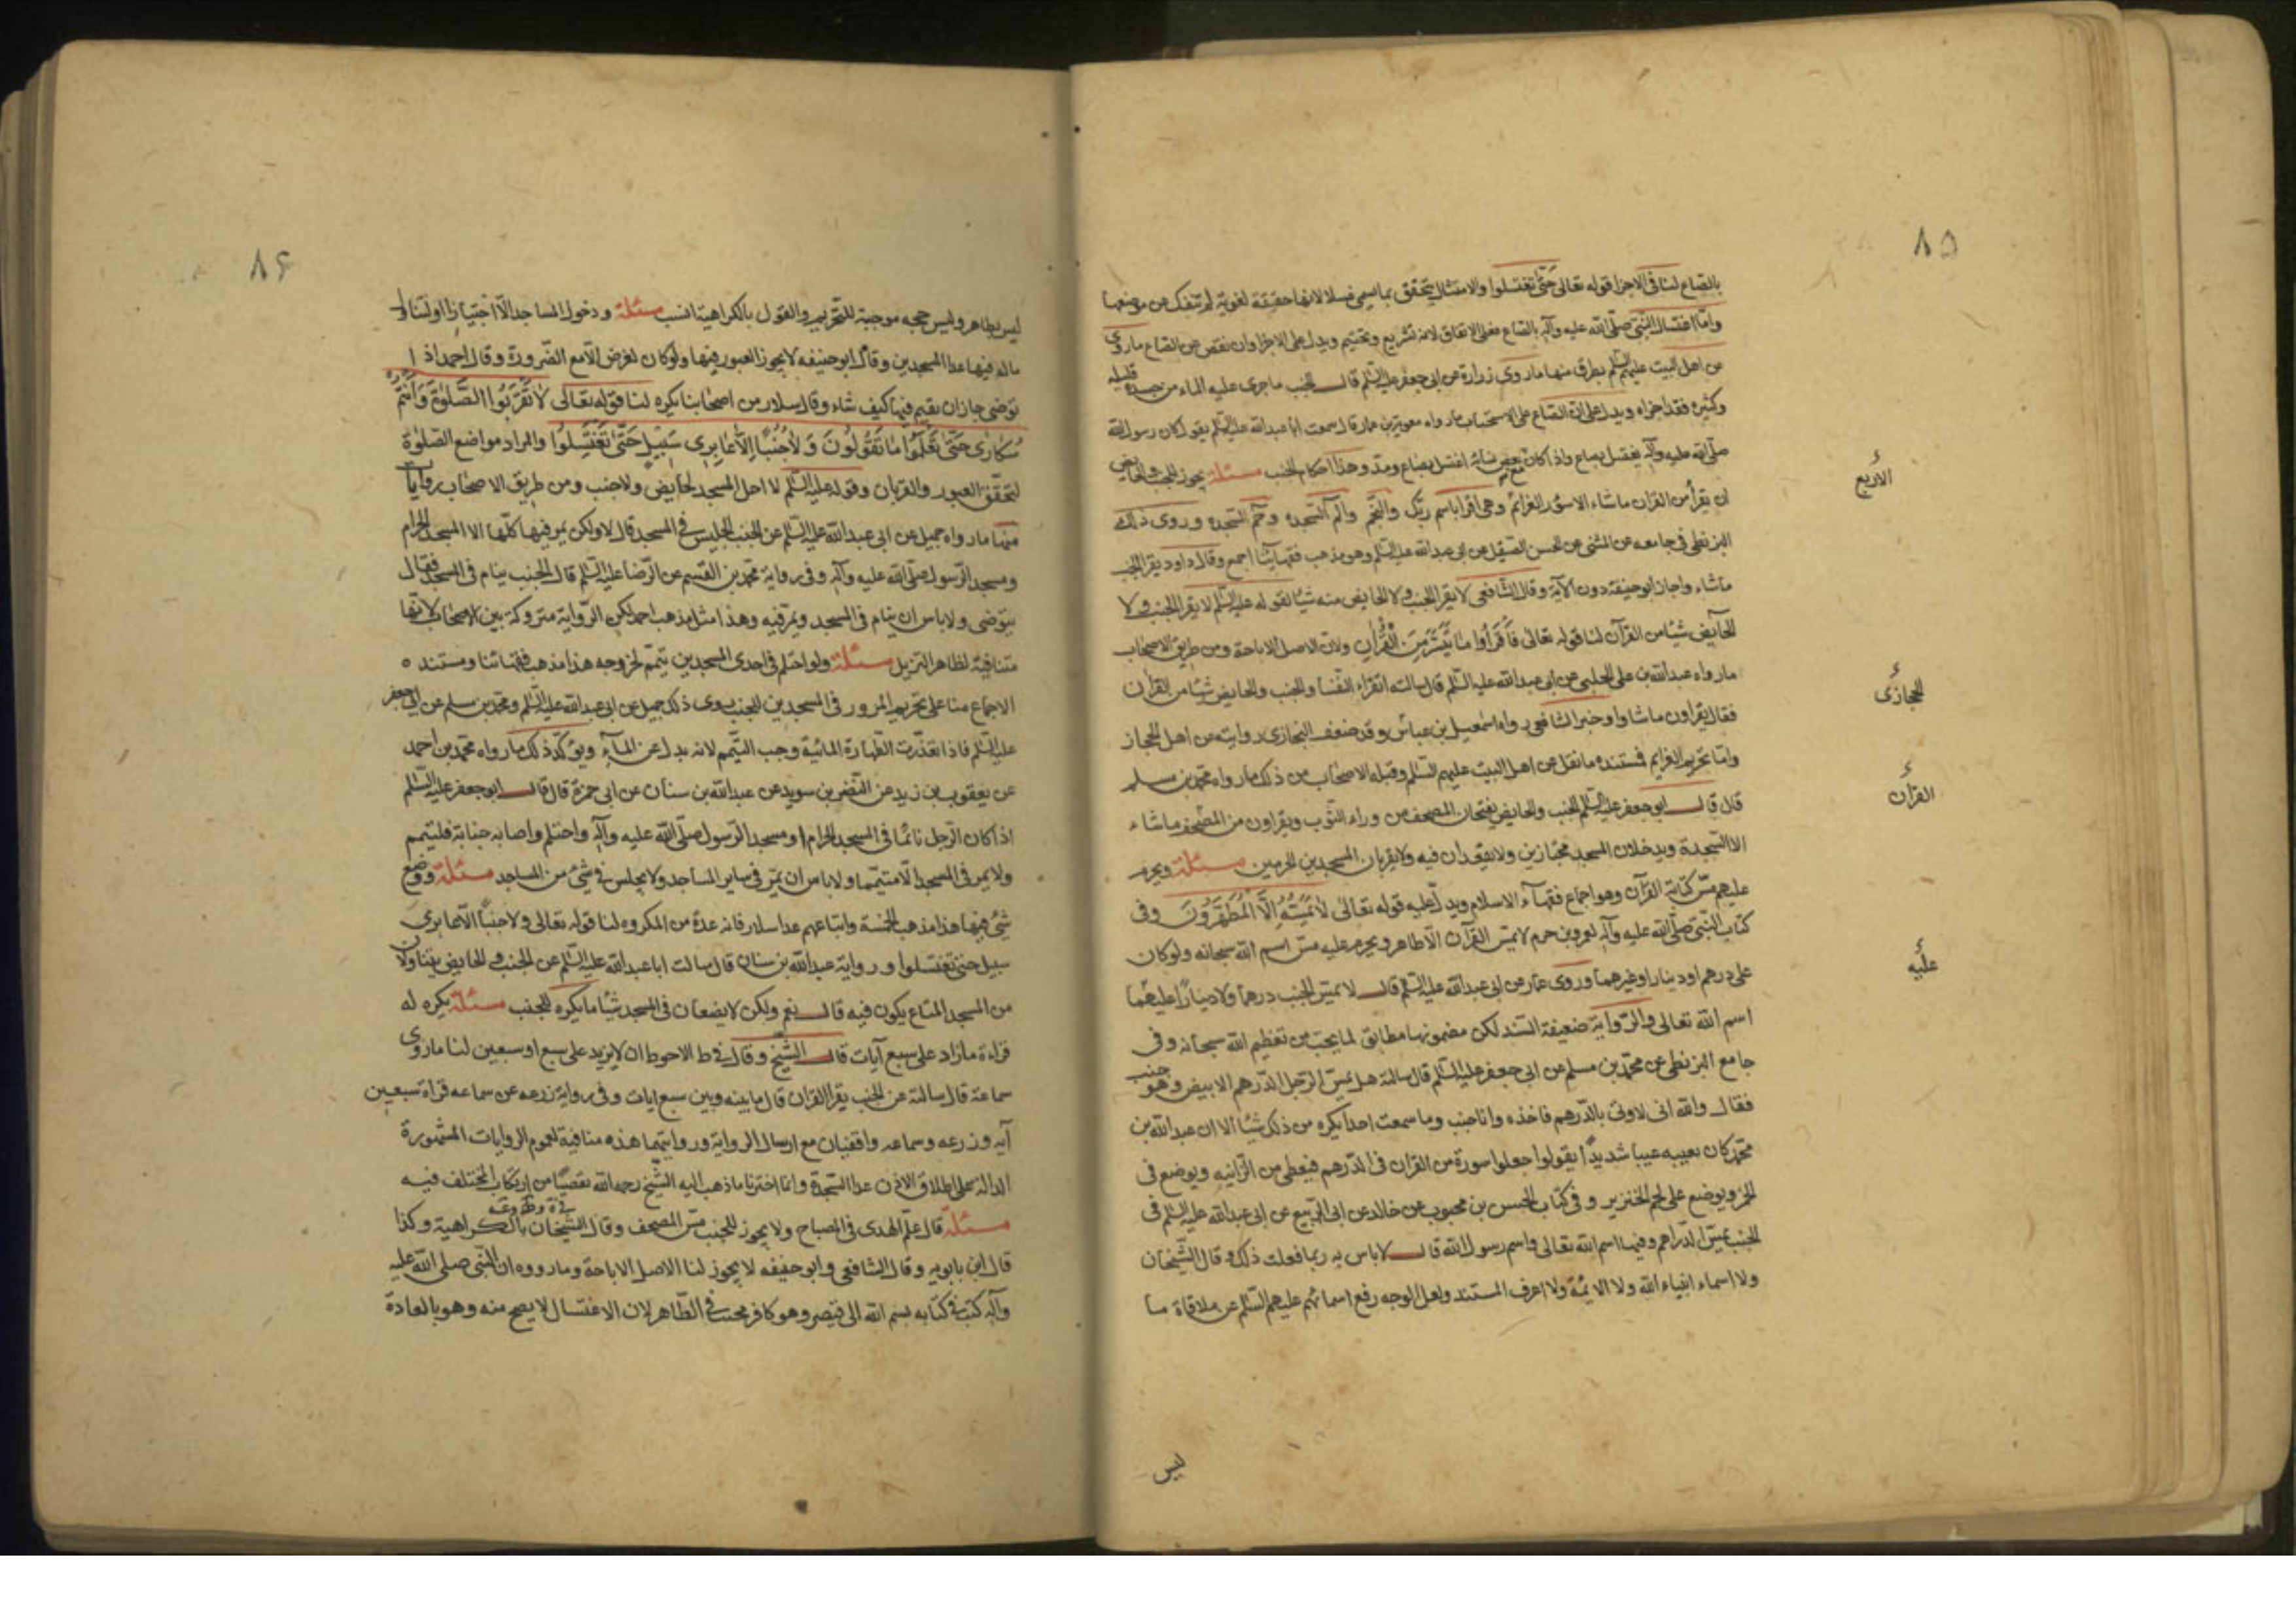 ٨٥
بالصاع لنا فى الاجزا قوله تعالى حتى تغتسلوا والامتثال يتحقق بما يسمى غسلا لانها حقيقة لغوية لم تنفك عن موضعها
واما اغتسال النبى صلى الله عليه وآله بالصاع فعلى الاتفاق لانه تشريع وتحتيم ويدل على الاجزا وان نقص عن الصاع ما روى
عن اهل البيت عليهم السلم بطرق منها ما روى زرارة عن ابى جعفر عليه السلم قال الجنب ما جرى عليه الماء من جسده قليله
وكثيره فقد اجزاه ويدل على ان الصاع على الاستحباب ما رواه معوية بن عمار قال سمعت ابا عبد الله عليه السلم يقول كان رسول الله
صلى الله عليه وآله يغتسل بصاع واذا كان معه بعض نسائه اغتسل بصاع ومد وهذا احكام الجنب مسئلة يجوز للجنب والحايض
ان يقرأ من القران ماشاء الا سور العزائم وهى اقرا باسم ربك والنجم والم السجده وحم السجده وروى ذلك
الاربع
البزنطى فى جامعه عن المثنى عن الحسن الصيقل عن ابى عبد الله عليه السلم وهو مذهب فقهائنا اجمع وقال داود يقرا الجنب
ماشاء واجاز ابو حنيفة دون الآية وقال الشافعى لا يقرا الجنب ولا الحايض منه شيئا لقوله عليه السلم لا يقرا الجنب ولا
الحايض شيئا من القرآن لنا قوله تعالى فَاقرَأوا مَا تَيَسَّرَ مِنَ الْقُرْآنِ ولان الاصل الاباحة ومن طريق الاصحاب
ما رواه عبد الله بن على الحلبى عن ابى عبد الله عليه السلم قال سالته اتقرا النفسا والجنب والحايض شيئا من القرآن
فقال يقراون ما شاوا وخبر الشافعى رواه اسمعيل بن عياش وقد ضعف البخارى روايته عن اهل الحجاز
الحجازى
واما تحريم العزايم فمستنده ما نقل عن اهل البيت عليهم السلم وقبله الاصحاب من ذلك ما رواه محمد بن مسلم
قال قال ابو جعفر عليه السلم الجنب والحايض يفتحان المصحف من وراء الثوب ويقراون من المصحف ماشاء
القرآن
الا السجدة ويدخلان المسجد مجتازين ولا يقعدان فيه ولا يقربان المسجدين الحرمين مسئلة ويحرم
عليهم مس كتابة القرآن وهو اجماع فقهآء الاسلام ويدل عليه قوله تعالى لا يَمَسُّهُ اِلَّا الْمُطَهَّرُونَ وفى
كتاب النبى صلى الله عليه وآله لعمرو بن حزم لا يمس القرآن الا طاهر ويحرم عليه مس اسم الله سبحانه ولو كان
على درهم او دينار او غيرهما وروى عمار عن ابى عبد الله عليه السلم قال لا يمس الجنب درهما ولا دينارا عليهما
عليه
اسم الله تعالى والرواية ضعيفة السند لكن مضمونها مطابق لما يجب من تعظيم الله سبحانه وفى
جامع البزنطى عن محمد بن مسلم عن ابى جعفر عليه السلم قال سالته هل يمس الرجل الدرهم الابيض وهو جنب
فقال والله انى لاوتى بالدرهم فاخذه وانا جنب وما سمعت احدا يكره من ذلك شيئا الا ان عبد الله بن
محمد كان يعيبه عيبا شديدا يقول جعلوا سورة من القران فى الدرهم فيعطى من الزانيه ويوضع فى
الخمر ويوضع على لحم الخنزير وفى كتاب الحسن بن محبوب عن خالد عن ابى الربيع عن ابى عبد الله عليه السلم فى
الجنب يمس الدراهم وفيها اسم الله تعالى واسم رسول الله قال لا باس به ربما فعلت ذلك وقال الشيخان
ولا اسماء انبياء الله ولا الائمة ولا اعرف المستند ولعل الوجه رفع اسمائهم عليهم السلم عن ملاقاة ما
ليس
٨۶
ليس بطاهر وليس حجه موجبة للتحريم والقول بالكراهية انسب مسئلة ودخول المساجد الا اجتيازا او لتناول
ماله فيها عدا المسجدين وقال ابو حنيفه لا يجوز العبور فيها ولو كان لغرض الا مع الضرورة وقال احمد اذا
توضى جاز ان يقيم فيها كيف شاء وقال سلار من اصحابنا يكره لنا قوله تعالى لَا تَقْرَبُوا الصَّلوٰةَ وَاَنتُمْ
سُكَارى حَتّى تَعْلَمُوا مَا تَقُولُونَ وَلَا جُنُبًا اِلَّا عَابِرِى سَبِيلٍ حَتّى تَغْتَسِلُوا والمراد مواضع الصلوة
ليتحقق العبور والقربان وقوله عليه السلم لا احل المسجد لحايض ولا جنب ومن طريق الاصحاب روايات
منها ما رواه جميل عن ابى عبد الله عليه السلم عن الجنب الجليس فى المسجد قال لا ولكن يمر فيها كلها الا المسجد الحرام
ومسجد الرسول صلى الله عليه وآله وفى رواية محمد بن القسم عن الرضا عليه السلم قال الجنب ينام فى المسجد فقال
يتوضى ولا باس ان ينام فى المسجد ويمر فيه وهذا مثل مذهب احمد لكن الرواية متروكة بين الاصحاب لانها
متنافية لظاهر التنزيل مسئلة ولو احتلم فى احدى المسجدين تيمم لخروجه هذا مذهب فقهائنا ومستنده
الاجماع منا على تحريم المرور فى المسجدين للجنب روى ذلك جميل عن ابى عبد الله عليه السلم ومحمد بن مسلم عن ابى جعفر
عليه السلم فاذا تعذرت الطهارة المائية وجب التيمم لانه بدل عن المآء ويؤكد ذلك ما رواه محمد بن احمد
عن يعقوب بن زيد عن النضر بن سويد عن عبد الله بن سنان عن ابى حمزة قال قال ابو جعفر عليه السلم
اذا كان الرجل نائما فى المسجد الحرام او مسجد الرسول صلى الله عليه وآله واحتلم واصابه جنابة فليتيمم
ولا يمر فى المسجد الا متيمما ولا باس ان يمر فى ساير المساجد ولا يجلس فى شئ من المساجد مسئلة ووضع
شئ فيها هذا مذهب الخمسة واتباعهم عدا سلار فانه عده من المكروه لنا قوله تعالى ولا جنبا الا عابرى
سبيل حتى تغتسلوا ورواية عبد الله بن سنان قال سالت ابا عبد الله عليه السلم عن الجنب والحايض يتناولان
من المسجد المتاع يكون فيه قال نعم ولكن لا يضعان فى المسجد شيئا ما يكره للجنب مسئلة يكره له
قراءة ما زاد على سبع آيات قال الشيخ وقال فى ط الاحوط ان لا يزيد على سبع او سبعين لنا ما روى
سماعة قال سالته عن الجنب يقرا القران قال ما بينه وبين سبع ايات وفى رواية زرعه عن سماعه قراة سبعين
آيه وزرعه وسماعه واقفيان مع ارسال الرواية وروايتهما هذه منافية لعموم الروايات المشهورة
الدالة على اطلاق الاذن عدا السجدة وانما اخترنا ما ذهب اليه الشيخ رحمه الله تفصيا من ارتكاب المختلف فيه
مسئلة قال علم الهدى فى المصباح ولا يجوز للجنب مس المصحف وقال الشيخان بالكراهية وكذا
قال ابن بابويه وقال الشافعى وابو حنيفه لا يجوز لنا الاصل الاباحة وما رووه ان النبى صلى الله عليه
وآله كتب فى كتابه بسم الله الى قيصر وهو كافر محتسب فى الظاهر لان الاغتسال لا يصح منه وهو بالعادة